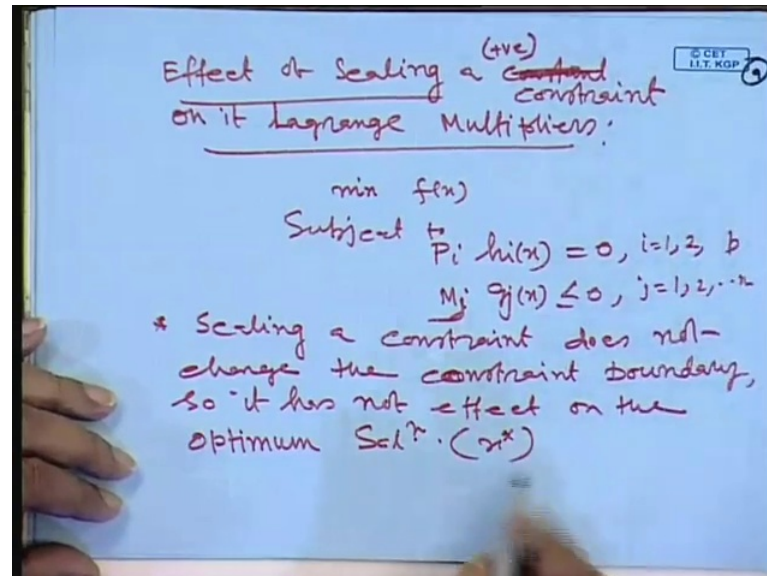 (+ve)
Effect of Scaling a constraint
on it Lagrange Multipliers:
© CET
I.I.T. KGP
9
min f(x)
Subject to
Pi hi(x) = 0, i=1, 2, p
Mj gj(x) ≤ 0, j=1, 2, ..
* Scaling a constraint does not-
change the constraint boundary,
so it has not effect on the
optimum Solⁿ. (x*)